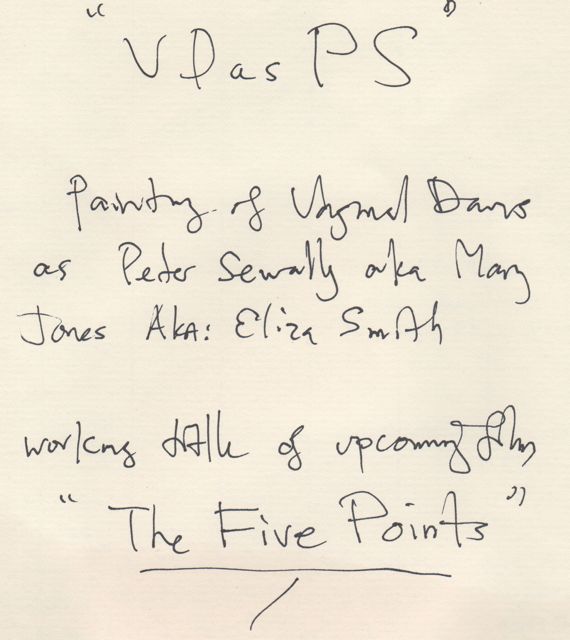 "VD as PS"
Painting of Vaginal Davis
as Peter Sewally aka Mary
Jones AKA: Eliza Smith
working title of upcoming film
"The Five Points"